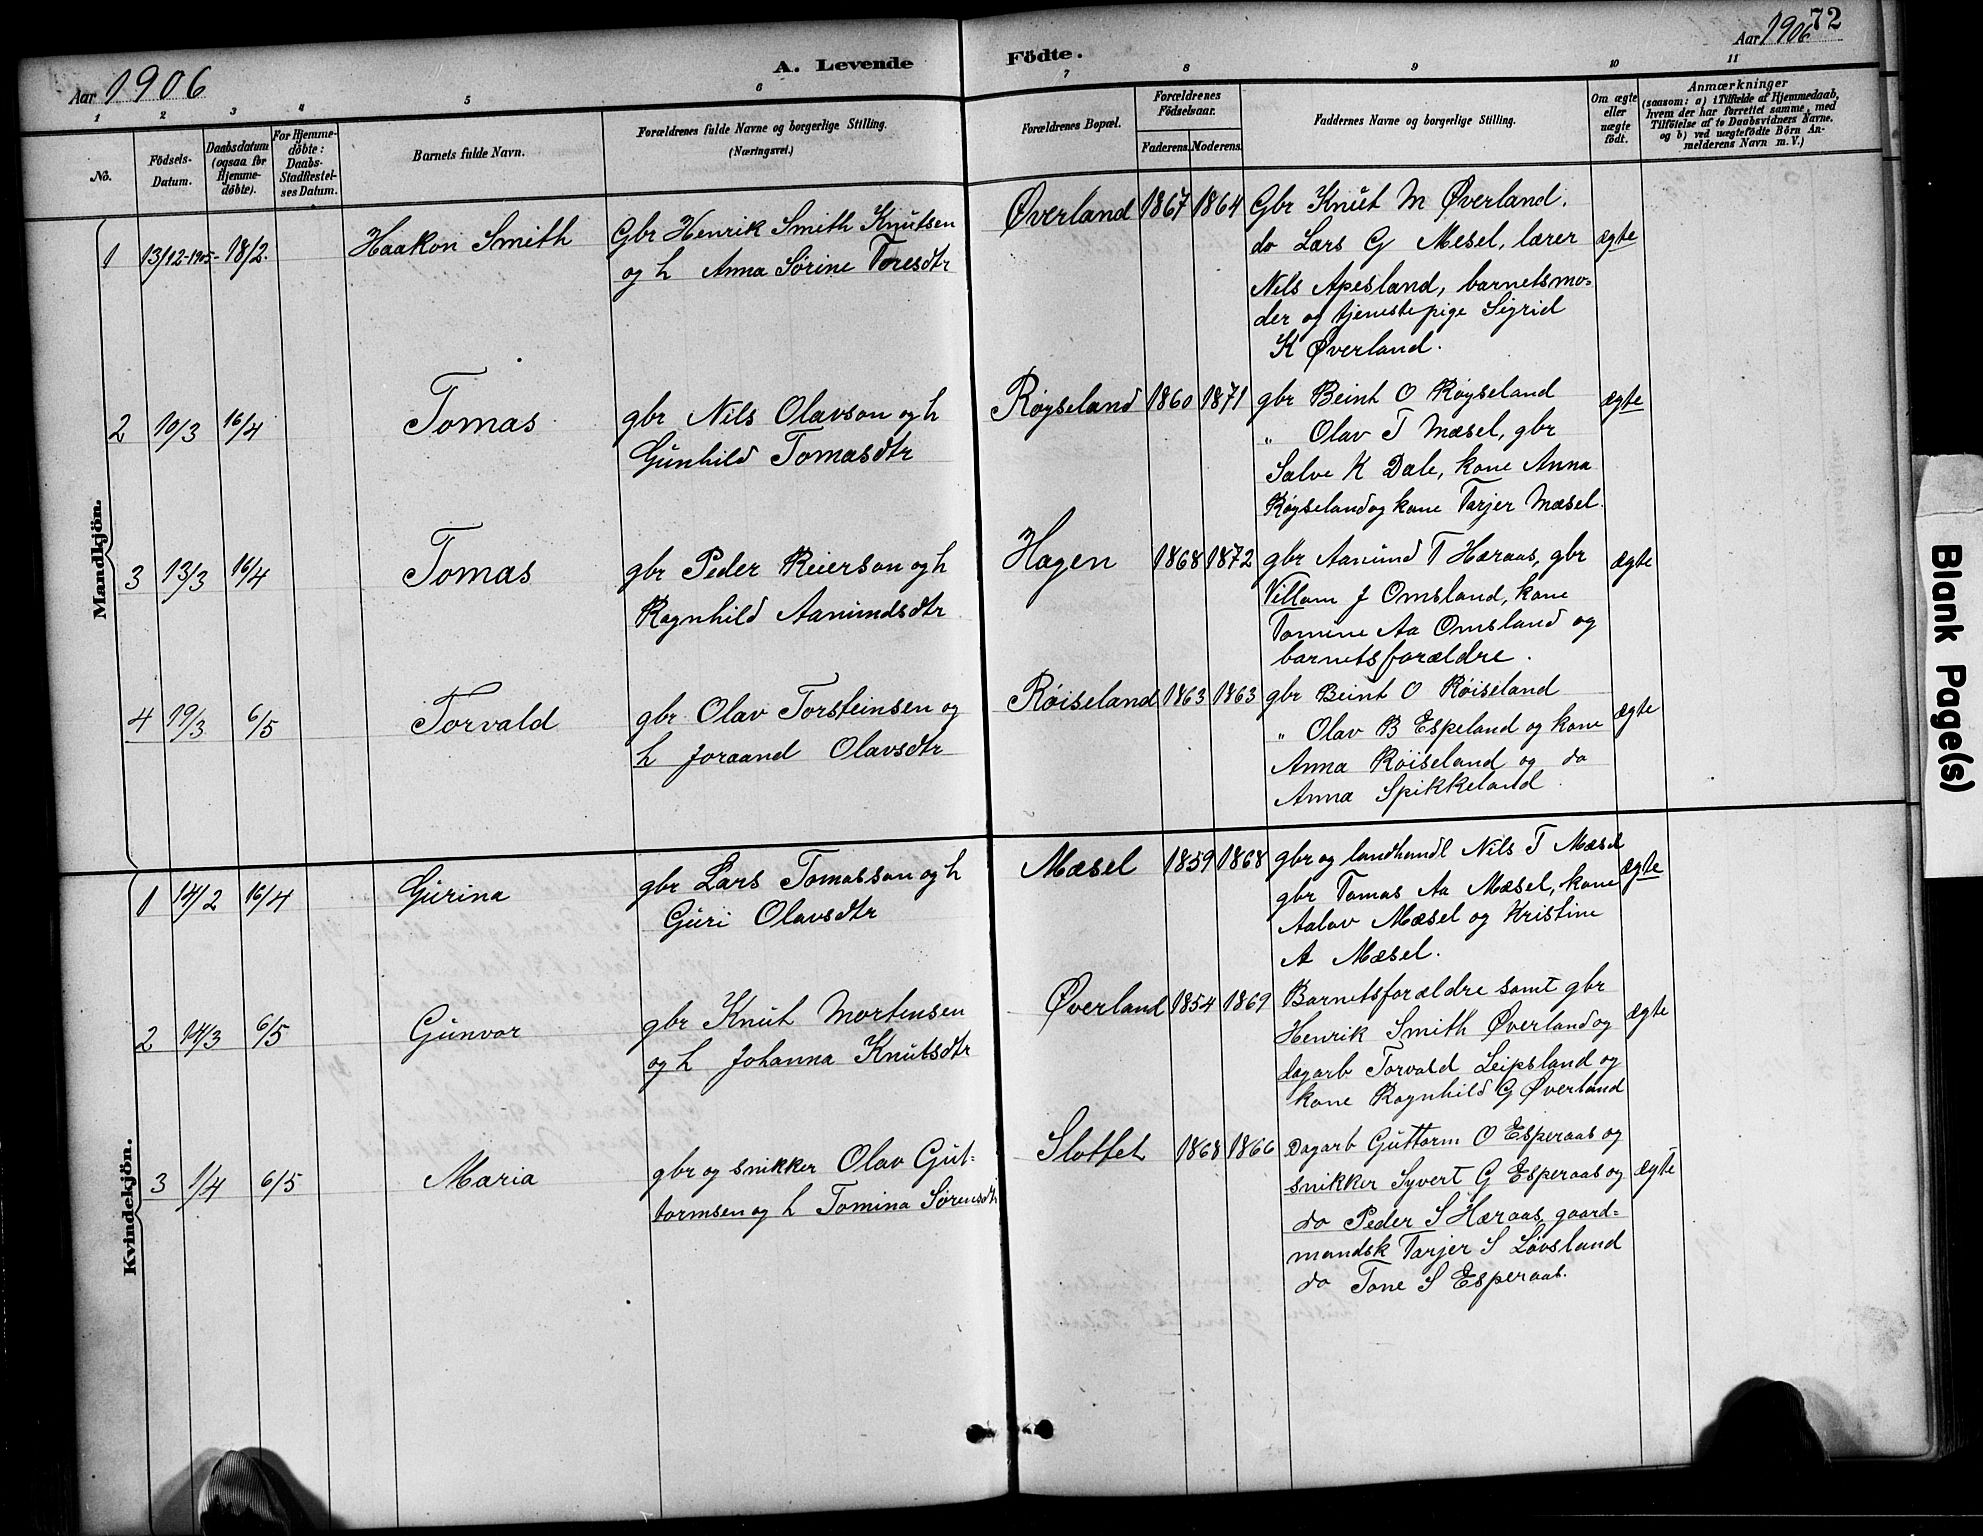 72
Aar 1906
A. Levende Födte.
Aar 1906
1 2 3 4 5 6 7 8 9 10 11
No.
Födsels-Datum.
Daabsdatum (ogsaa for Hjemme-døbte).
For Hjemme-døbte: Daabs-Stadfæstel-ses Datum.
Barnets fulde Navn.
Forældrenes fulde Navne og borgerlige Stilling.
(Næringsvei.)
Forældrenes Bopæl.
Forældrenes Födselsaar.
Faderens. Moderens.
Faddernes Navne og borgerlige Stilling.
Om ægte eller uægte födt.
Anmærkninger
(saasom: a) i Tilfælde af Hjemmedaab,
hvem der har forrettet samme, med
Tilföielse af to Daabsvidners Navne.
og b) ved uægtefödte Börn An-
melderens Navn m. V.)
Mandkjön.
1 13/12-1905- 18/2. Haakon Smith Gbr Henrik Smith Knutsen Øverland 1867 1864 Gbr Knut M Øverland. ægte
og h Anna Sørine Toresdtr do Lars G Mesel, lærer
Nils Apesland, barnetsmo-
der og tjenestepige Sigrid
K Øverland.
2 10/3 16/4 Tomas gbr Nils Olavson og h Røyseland 1860 1871 gbr Beint O Røyseland ægte
Gunhild Tomasdtr " Olav T Mæsel, gbr
Salve K Dale, kone Anna
Røyseland og kone Tarjer Mæsel.
3 13/3 16/4 Tomas gbr Peder Reierson og h Hagen 1868 1872 gbr Aanund T Hæraas, gbr ægte
Ragnhild Aanundsdtr Villam J Omsland, kone
Tomine Aa Omsland og
barnetsforældre.
4 19/3 6/5 Torvald gbr Olav Torsteinsen og Røiseland 1863 1863 gbr Beint O Røiseland ægte
h Joraand Olavsdtr " Olav B Espeland og kone
Anna Røiseland og do
Anna Spikkeland.
Kvindekjön.
1 14/2 16/4 Gurina gbr Lars Tomasson og h Mæsel 1859 1868 gbr og landhandl Nils T Mæsel ægte
Guri Olavsdtr gbr Tomas Aa Mæsel, kone
Aalav Mæsel og Kristine
A Mæsel.
2 14/3 6/5 Gunvor gbr Knut Mortensen Øverland 1854 1869 Barnetsforældre samt gbr ægte
og h Johanna Knutsdtr Henrik Smith Øverland og
dagarb Torvald Leipsland og
kone Ragnhild G Øverland
3 1/4 6/5 Maria gbr og snikker Olav Gut- Slottet 1868 1866 Dagarb Guttorm O Esperaas og ægte
tormsen og h Tomina Sørensdtr snikker Syvert G Esperaas og
do Peder S Hæraas, gaard-
mandsk Tarjer S Løvsland
do Tone S Esperaas.
Blank Page(s)